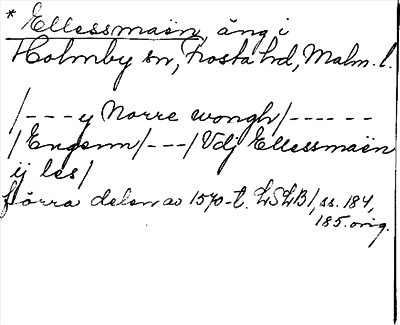 * Ellessmaën, äng i
Holmby sn, Frosta hd, Malm. l.
/---y Norre wongh/------
/Engenn/---/Vdj Ellessmaën
ij les/
förra delen av 1570-t. LSLB1, ss. 184,
185. orig.